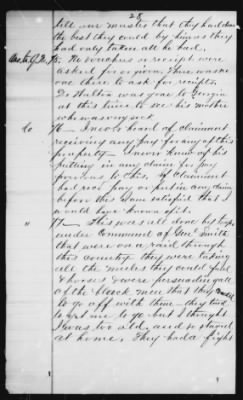 28
tell our master that they had done
the best they could by him as they
had only taken all he had.
75. No vouchers or receipt were
asked for or given. There was no
one there to ask for receipts.
Dr Walton was gone to Georgia
at this time to see his mother
who was very sick
76 I never heard of claimant
receiving any pay for any of this
property I never knew of his
putting in any claim for pay
previous to this, if claimant
had recd pay or put in any claim
before this I am satisfied that I
would have known of it.
" 77 This was all done by troops
under Command of Genl Smith
that were on a raid through
this country they were taking
all the mules they could find
& horses & were persuading all
of the black men that they could
to go off with them they tried
to get me to go but I thought
I was too old, and so stayed
at home. They had a fight